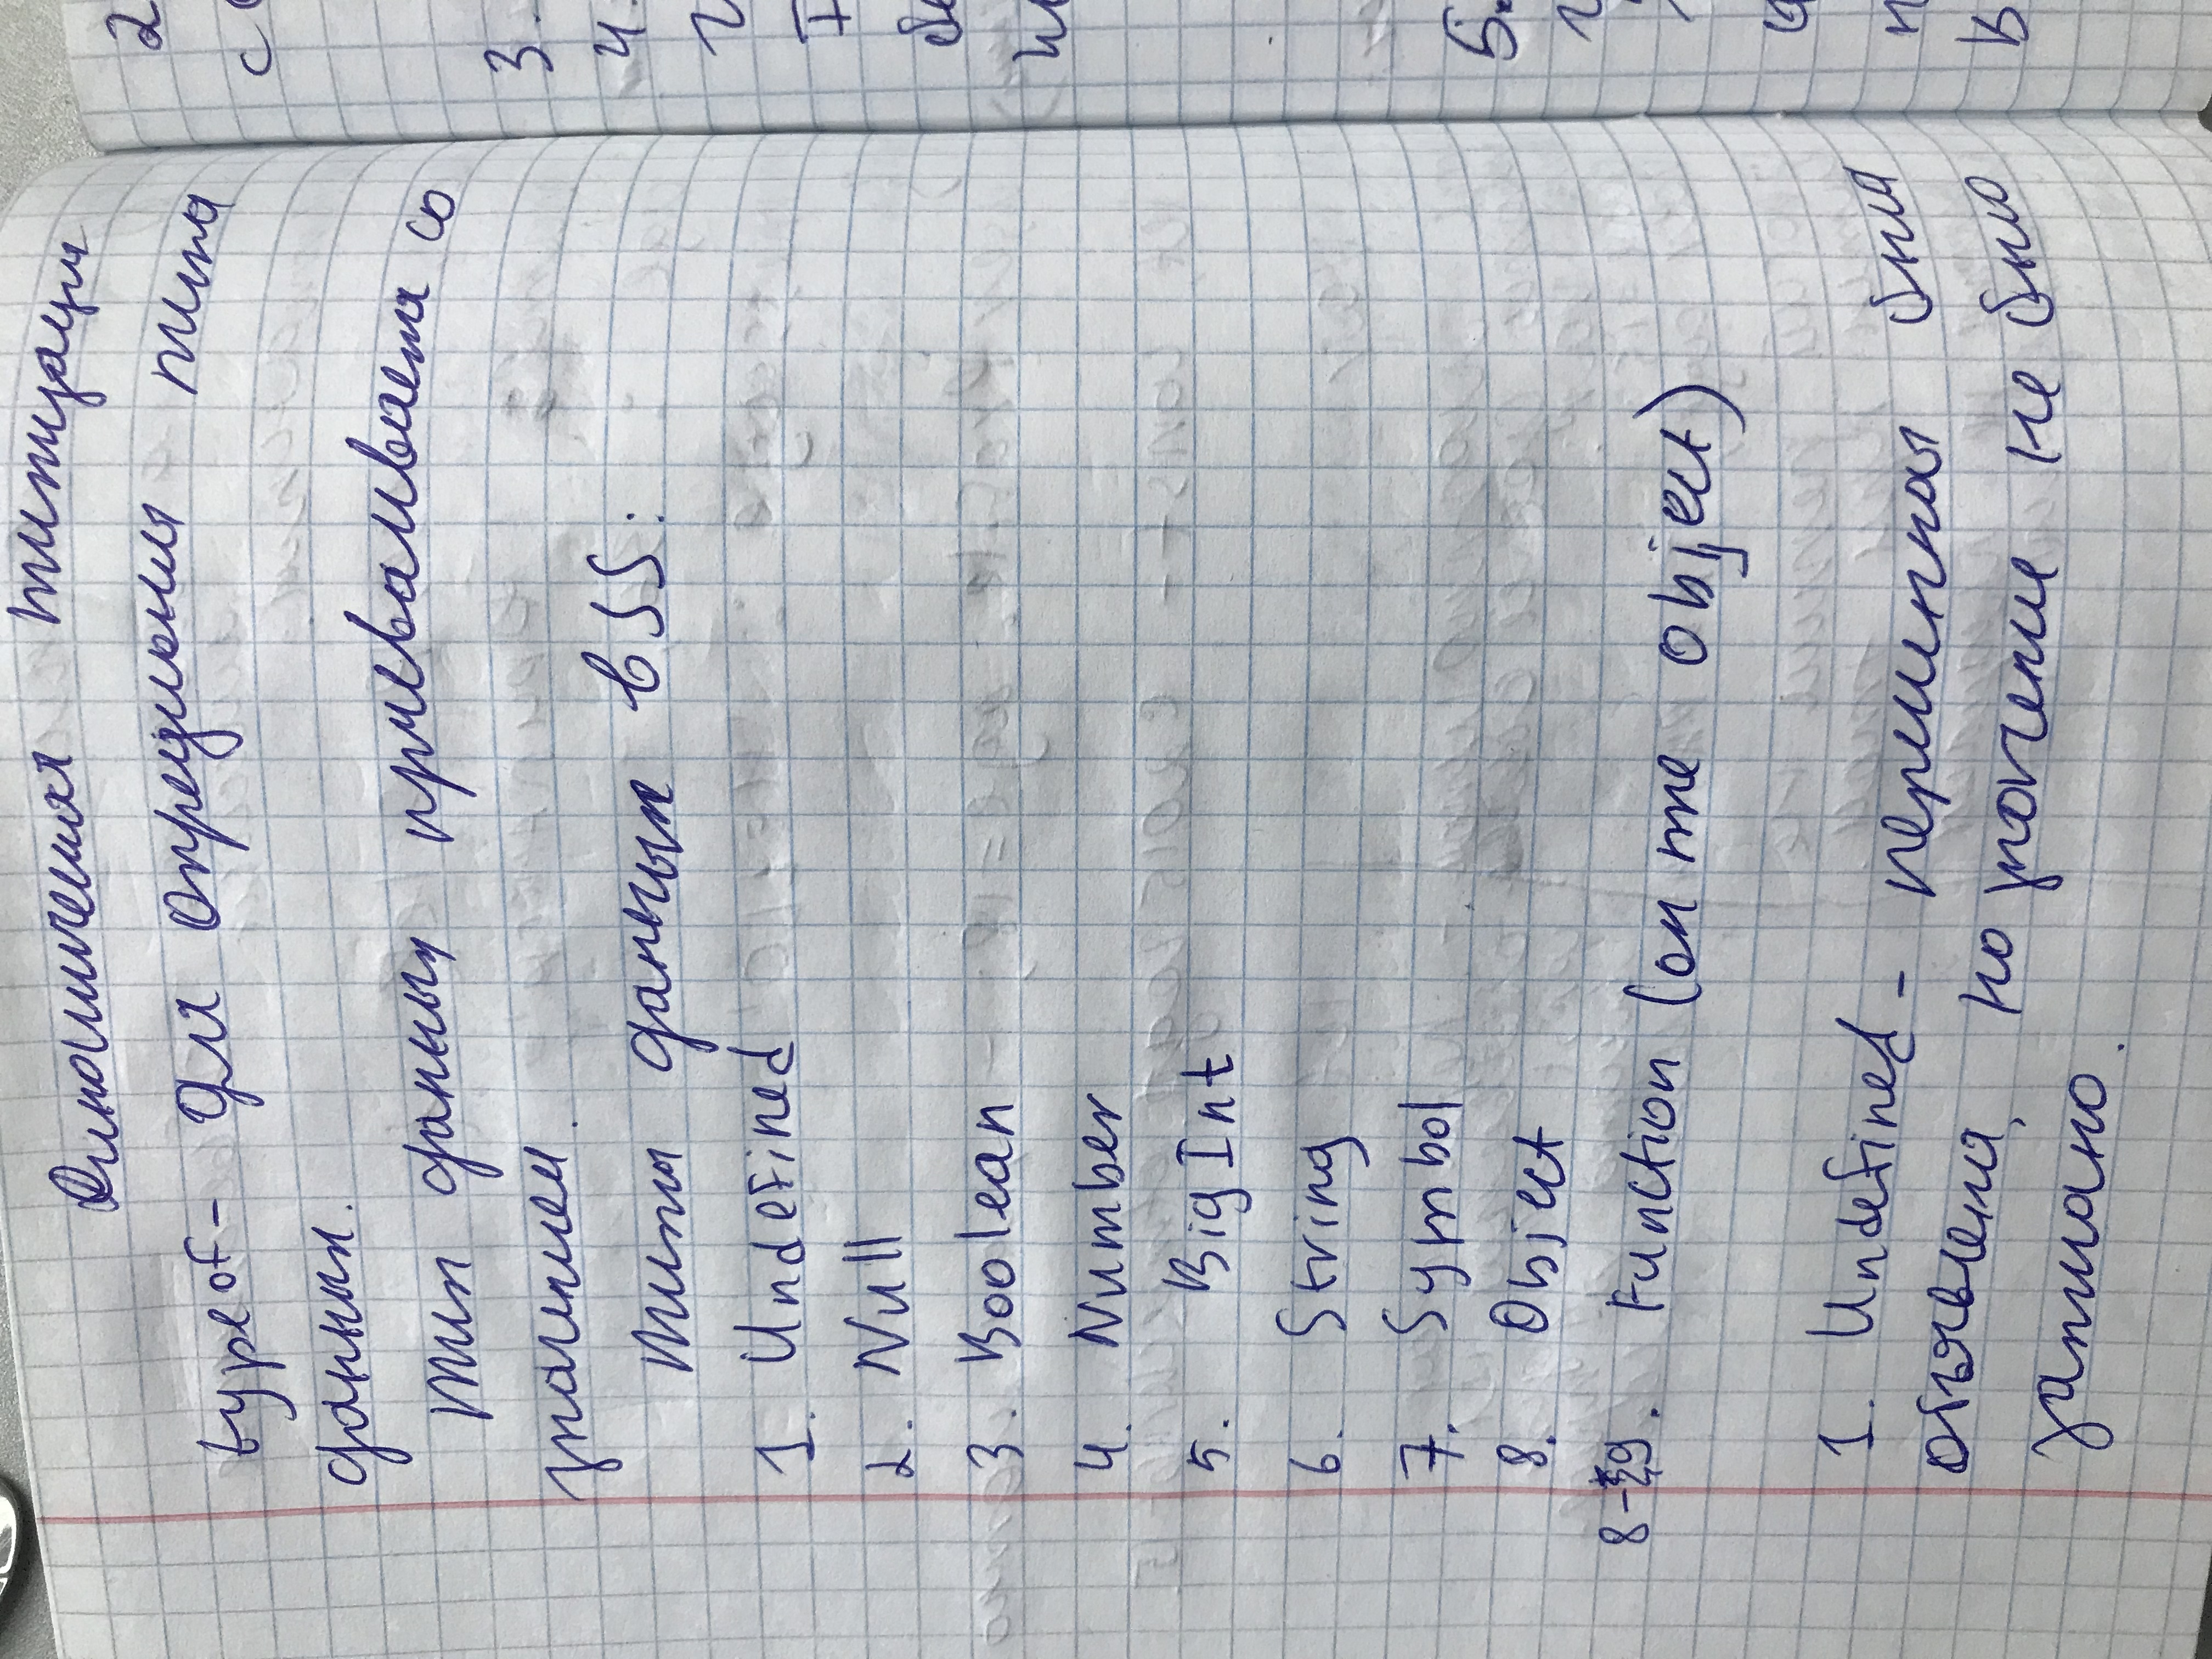 Динамическая типизация
typeof - для определения типа
данных.
Тип данных присваивается со
значением.
Типы данных в JS:
1. Undefined
2. Null
3. Boolean
4. Number
5. BigInt
6. String
7. Symbol
8. Object
8-9. Function (он же object)
1. Undefined - переменная была
объявлена, но значение не было
записано.
2
3.
4.
5.